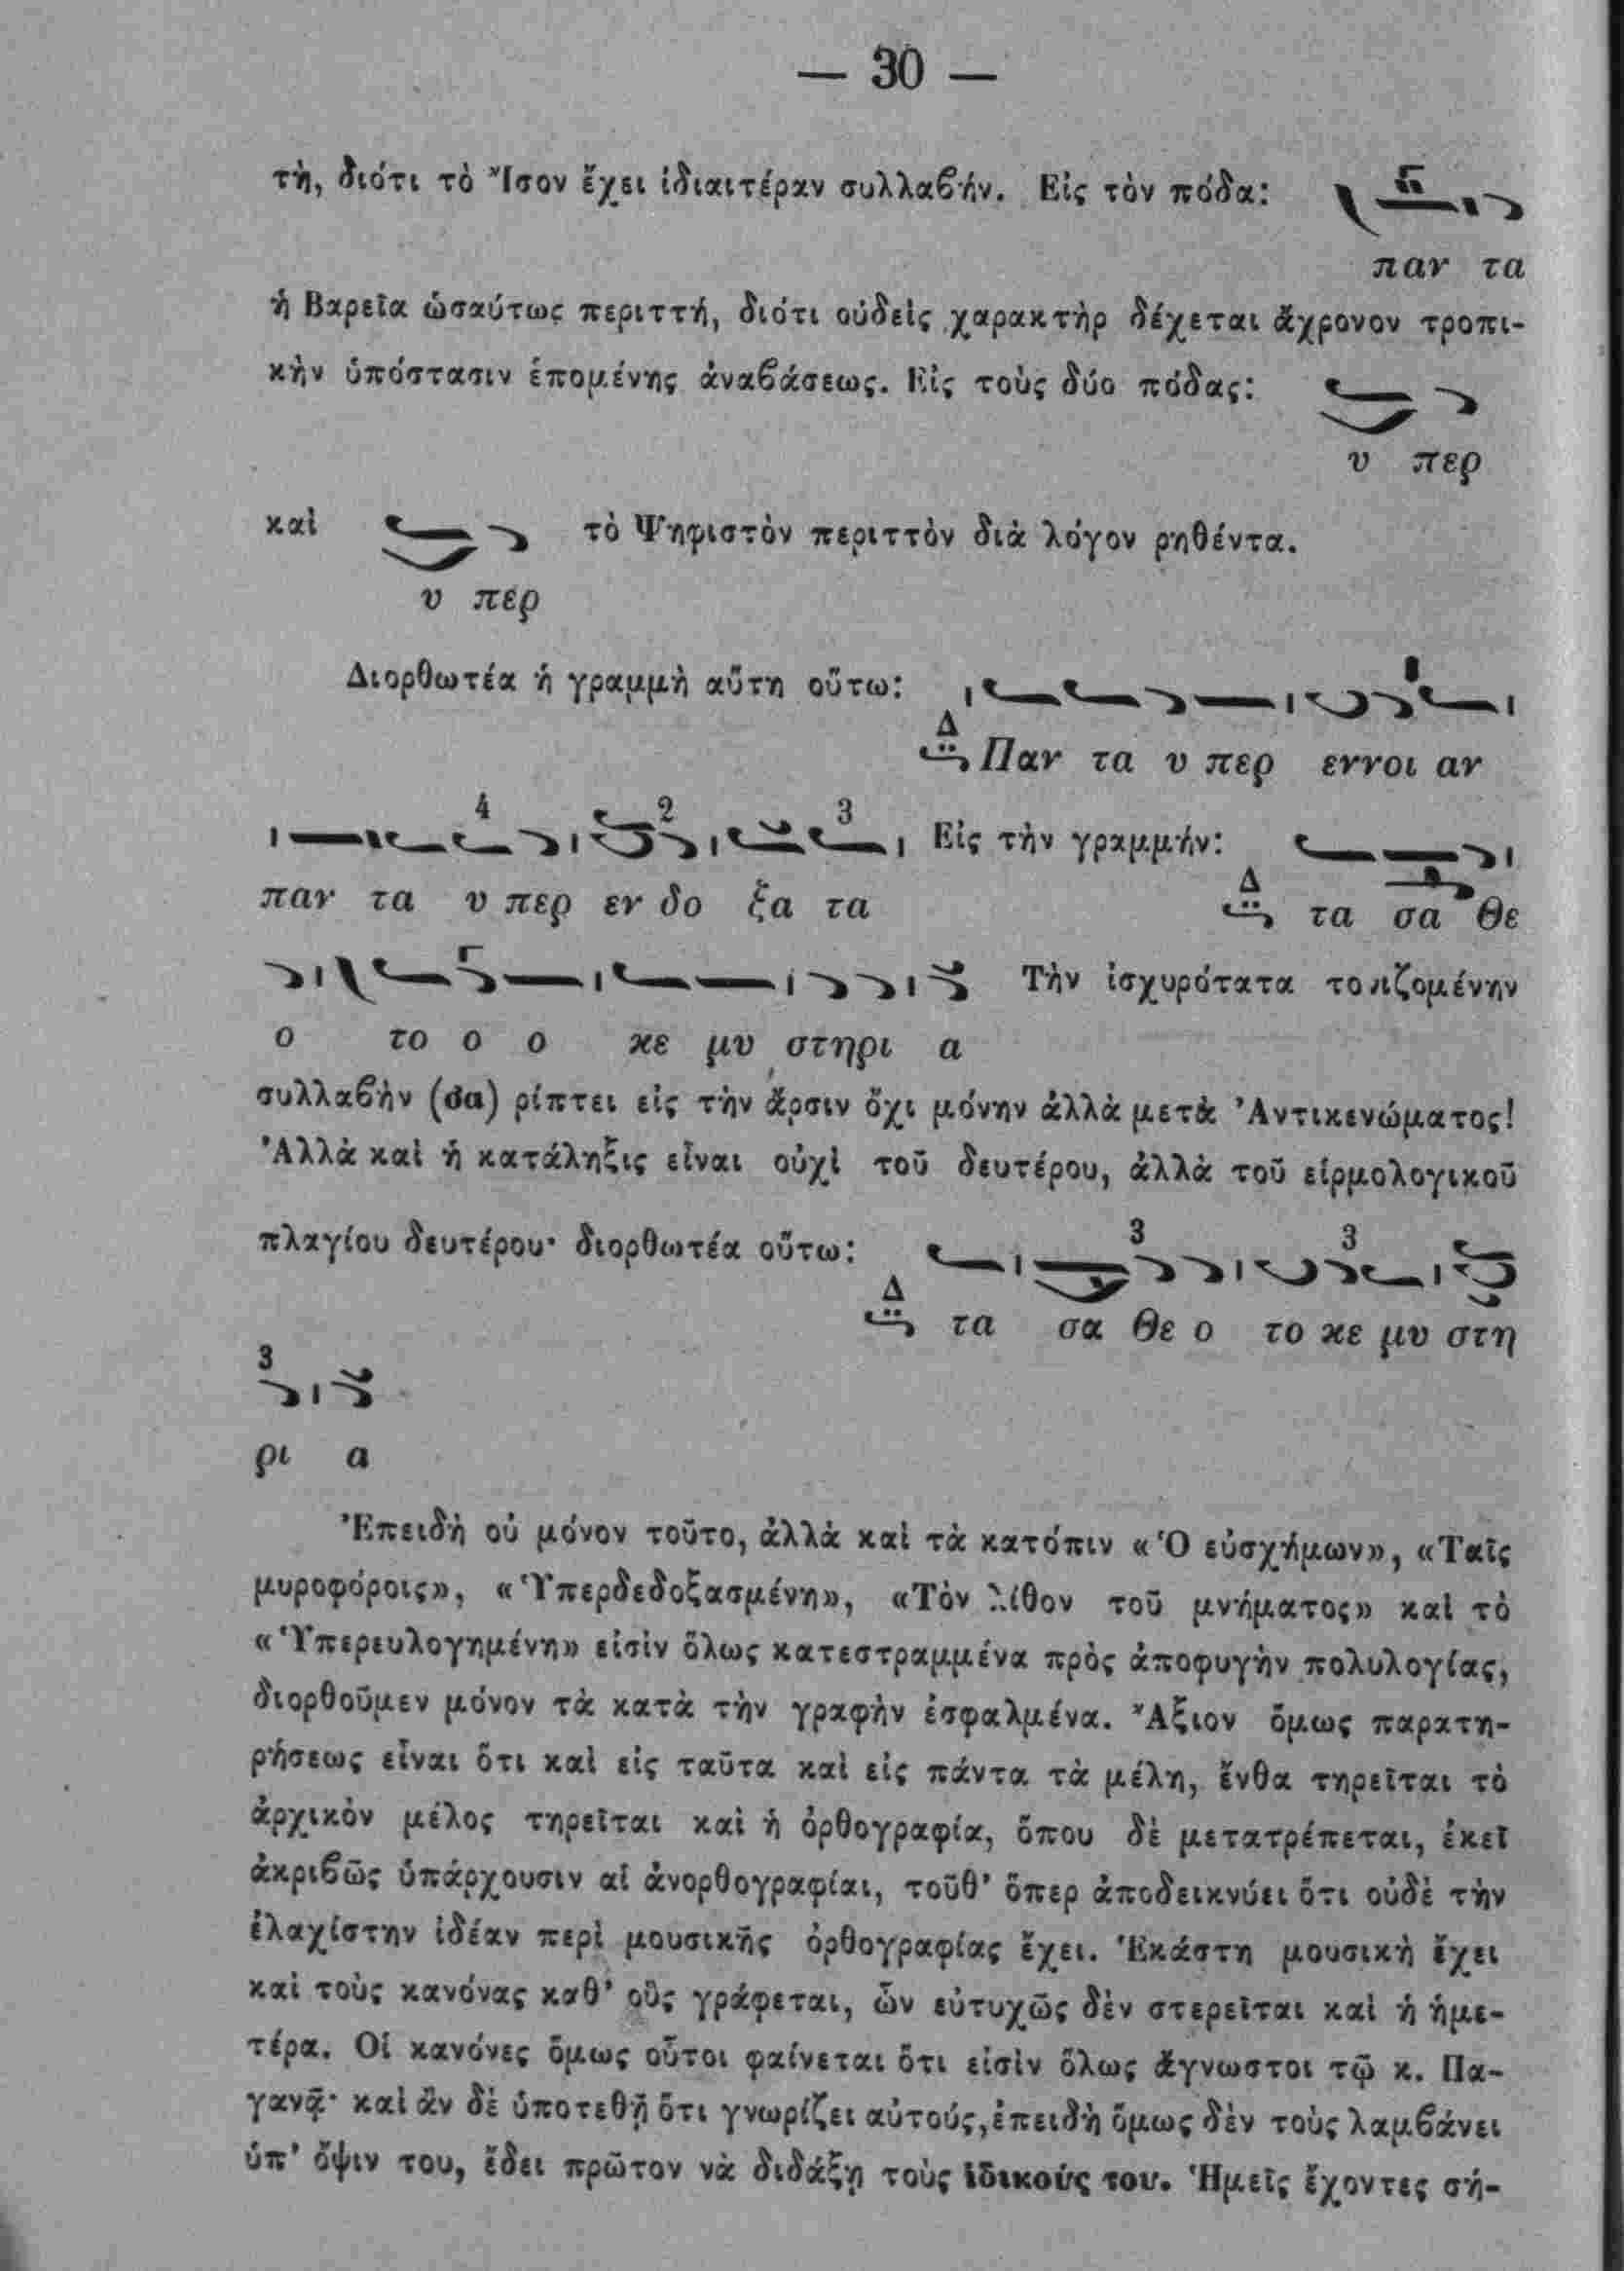 — 30 —
τὴ, διότι τὸ Ἴσον ἔχει ἰδιαιτέραν συλλαβήν. Εἰς τὸν πόδα:
παν τα
ἡ Βαρεῖα ὡσαύτως περιττή, διότι οὐδεὶς χαρακτὴρ δέχεται ἄχρονον τροπι-
κὴν ὑπόστασιν ἑπομένης ἀναβάσεως. Εἰς τοὺς δύο πόδας:
υ περ
καὶ τὸ Ψηφιστὸν περιττὸν διὰ λόγον ρηθέντα.
υ περ
Διορθωτέα ἡ γραμμὴ αὕτη οὕτω:
Δ Παν τα υ περ εννοι αν
4 2 3 Εἰς τὴν γραμμήν:
παν τα υ περ εν δο ξα τα Δ τα σα Θε
Τὴν ἰσχυρότατα τονιζομένην
ο το ο ο κε μυ στηρι α
συλλαβὴν (σα) ρίπτει εἰς τὴν ἄρσιν ὄχι μόνην ἀλλὰ μετὰ Ἀντικενώματος!
Ἀλλὰ καὶ ἡ κατάληξις εἶναι οὐχὶ τοῦ δευτέρου, ἀλλὰ τοῦ εἱρμολογικοῦ
πλαγίου δευτέρου· διορθωτέα οὕτω: 3 3
Δ τα σα Θε ο το κε μυ στη
3
ρι α
Ἐπειδὴ οὐ μόνον τοῦτο, ἀλλὰ καὶ τὰ κατόπιν «Ὁ εὐσχήμων», «Ταῖς
μυροφόροις», «Ὑπερδεδοξασμένη», «Τὸν λίθον τοῦ μνήματος» καὶ τὸ
«Ὑπερευλογημένη» εἰσὶν ὅλως κατεστραμμένα πρὸς ἀποφυγὴν πολυλογίας,
διορθοῦμεν μόνον τὰ κατὰ τὴν γραφὴν ἐσφαλμένα. Ἄξιον ὅμως παρατη-
ρήσεως εἶναι ὅτι καὶ εἰς ταῦτα καὶ εἰς πάντα τὰ μέλη, ἔνθα τηρεῖται τὸ
ἀρχικὸν μέλος τηρεῖται καὶ ἡ ὀρθογραφία, ὅπου δὲ μετατρέπεται, ἐκεῖ
ἀκριβῶς ὑπάρχουσιν αἱ ἀνορθογραφίαι, τοῦθ' ὅπερ ἀποδεικνύει ὅτι οὐδὲ τὴν
ἐλαχίστην ἰδέαν περὶ μουσικῆς ὀρθογραφίας ἔχει. Ἑκάστη μουσικὴ ἔχει
καὶ τοὺς κανόνας καθ' οὓς γράφεται, ὧν εὐτυχῶς δὲν στερεῖται καὶ ἡ ἡμε-
τέρα. Οἱ κανόνες ὅμως οὗτοι φαίνεται ὅτι εἰσὶν ὅλως ἄγνωστοι τῷ κ. Πα-
γανᾷ· καὶ ἂν δὲ ὑποτεθῇ ὅτι γνωρίζει αὐτούς, ἐπειδὴ ὅμως δὲν τοὺς λαμβάνει
ὑπ' ὄψιν του, ἔδει πρῶτον νὰ διδάξῃ τοὺς ἰδικούς του. Ἡμεῖς ἔχοντες σή-